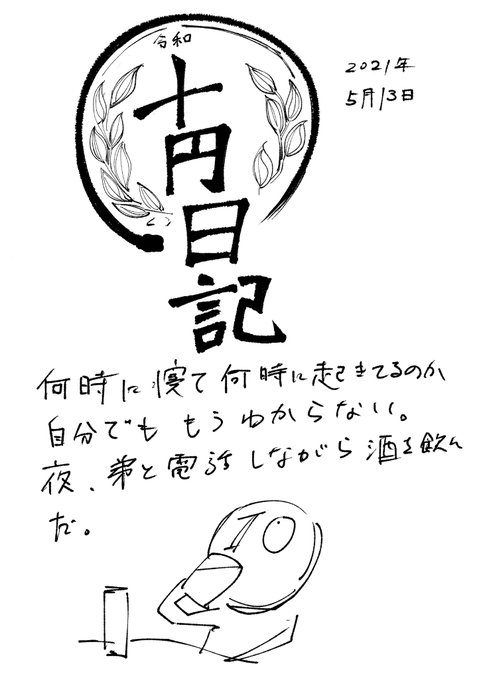 令和
十円日記
2021年
5月13日
何時に寝て何時に起きてるのか
自分でももうわからない。
夜、弟と電話しながら酒を飲ん
だ。
10